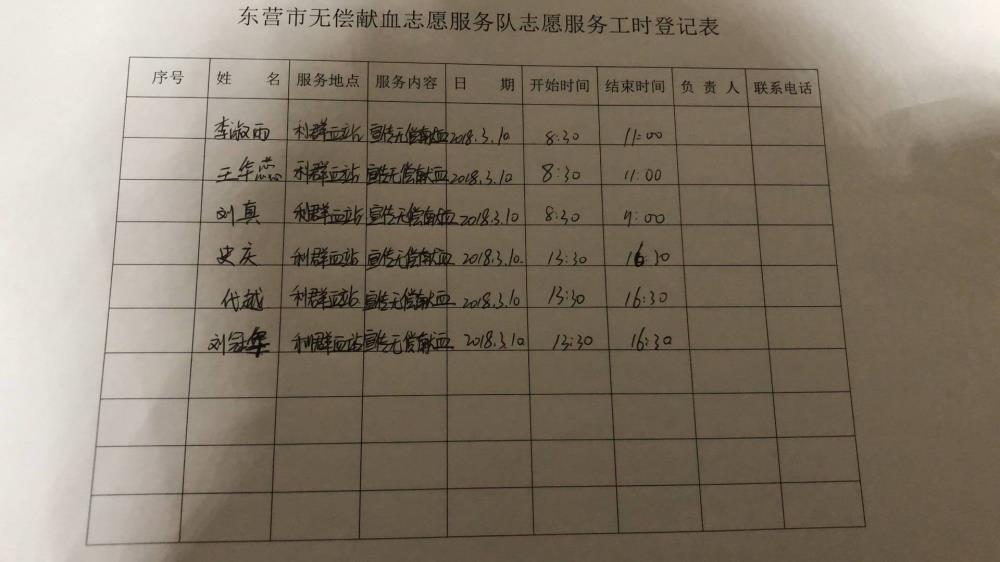 东营市无偿献血志愿服务队志愿服务工时登记表
序号 姓 名 服务地点 服务内容 日 期 开始时间 结束时间 负责人 联系电话
李淑雨 利群血站 宣传无偿献血 2018.3.10 8:30 11:00
王华蕊 利群血站 宣传无偿献血 2018.3.10 8:30 11:00
刘真 利群血站 宣传无偿献血 2018.3.10 8:30 11:00
史庆 利群血站 宣传无偿献血 2018.3.10. 13:30 16:30
代越 利群血站 宣传无偿献血 2018.3.10 13:30 16:30
刘冠华 利群血站 宣传无偿献血 2018.3.10 13:30 16:30